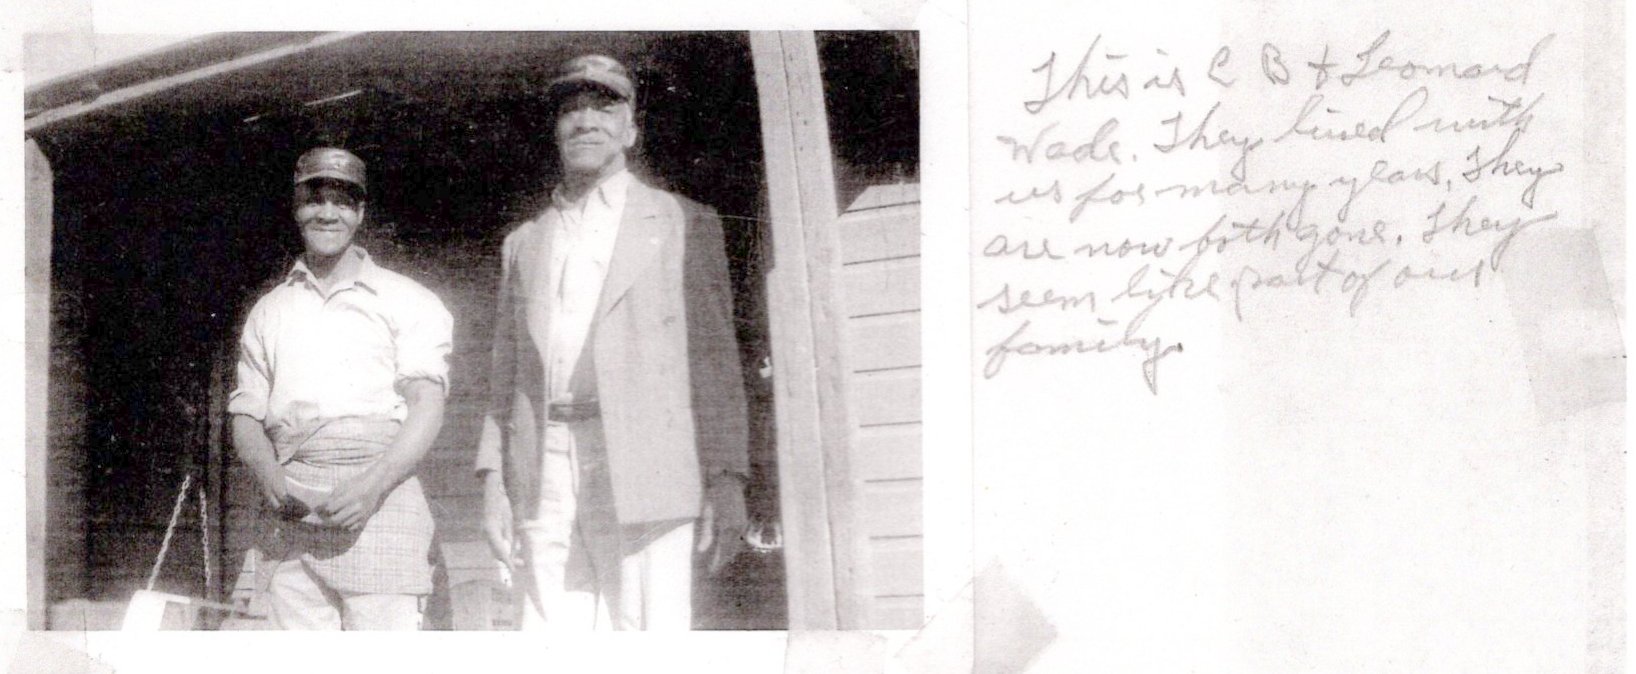 This is C B + Leonard
Wade. They lived with
us for many years. They
are now both gone. They
seem lyke part of our
family.